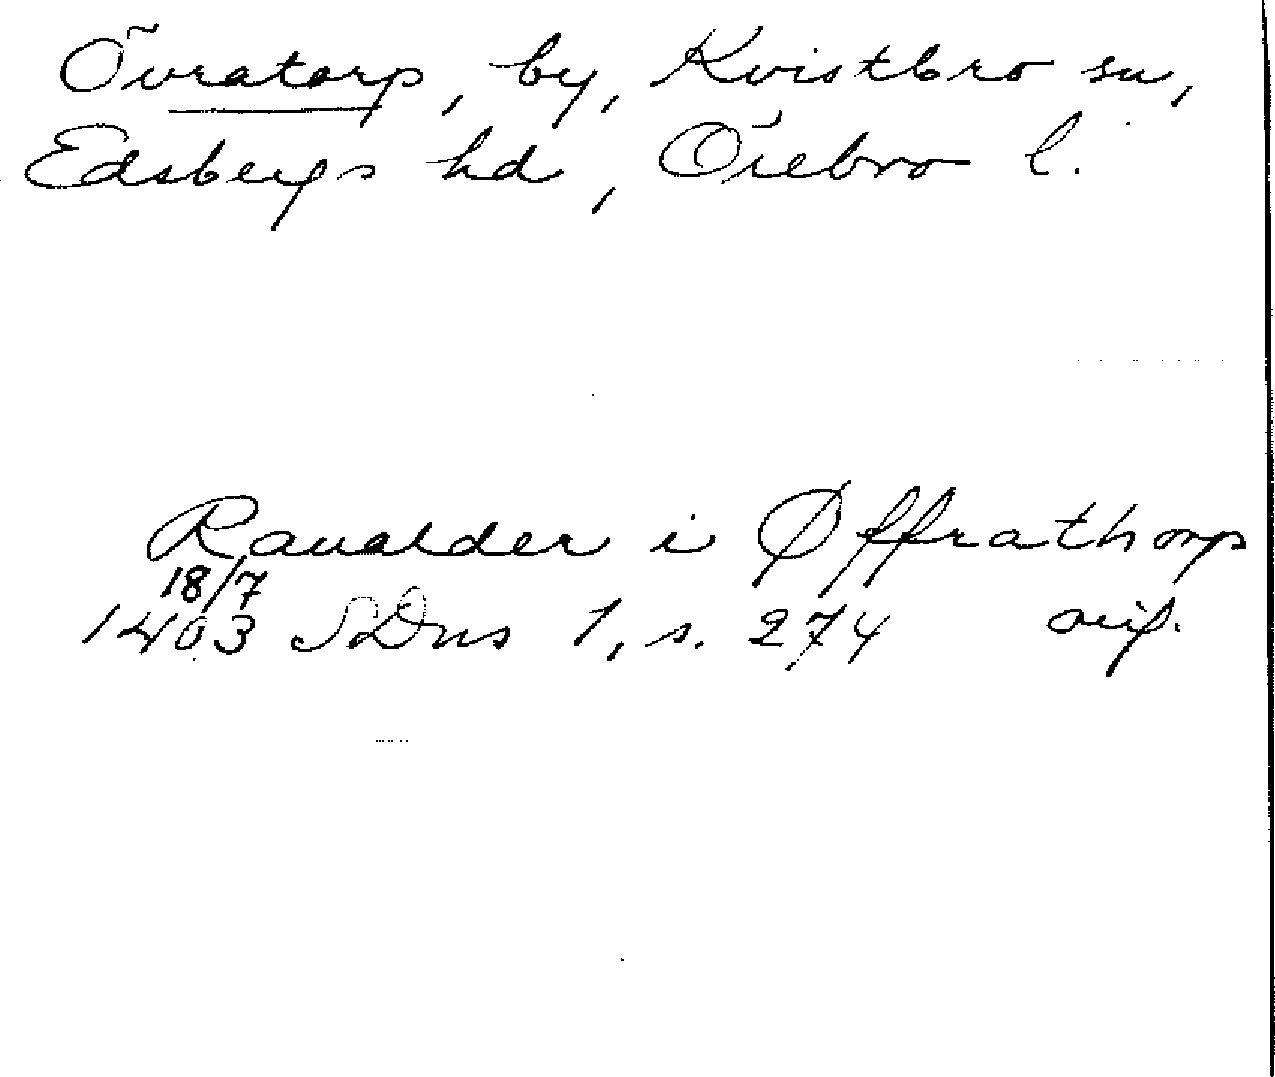 Övratorp, by, Kvistbro sn,
Edsbergs hd, Örebro l.
Raualder i Øffrathorp
18/7
1403 SDns 1, s. 274 orig.